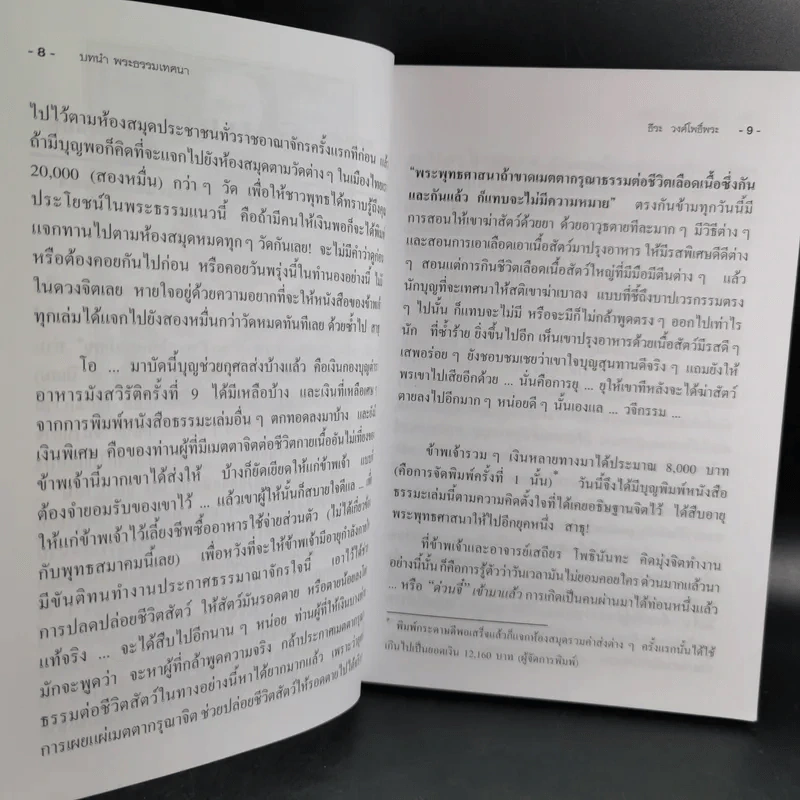 - 8 - บทนำ พระธรรมเทศนา
ไปไว้ตามห้องสมุดประชาชนทั่วราชอาณาจักรครั้งแรกทีก่อน แล้ว
ถ้ามีบุญพอก็คิดที่จะแจกไปยังห้องสมุดตามวัดต่าง ๆ ในเมืองไทย
20,000 (สองหมื่น) กว่า ๆ วัด เพื่อให้ชาวพุทธได้ทราบรู้ถึง
ประโยชน์ในพระธรรมแนวนี้ คือถ้ามีคนให้เงินพอก็จะได้พิมพ์
แจกทานไปตามห้องสมุดหมดทุก ๆ วัดกันเลย! จะไม่มีคำว่าดูก่อน
หรือต้องคอยกันไปก่อน หรือคอยวันพรุ่งนี้ในทำนองอย่างนี้ ไม่
ในดวงจิตเลย หายใจอยู่ด้วยความอยากที่จะให้หนังสือของข้าพเจ้า
ทุกเล่มได้แจกไปยังสองหมื่นกว่าวัดหมดทันทีเลย ด้วยซ้ำไป
โอ ... มาบัดนี้บุญช่วยกุศลส่งบ้างแล้ว คือเงินกองบุญ
อาหารมังสวิรัติครั้งที่ 9 ได้มีเหลือบ้าง และเงินที่เหลือเศษ ๆ
จากการพิมพ์หนังสือธรรมะเล่มอื่น ๆ ตกทอดลงมาบ้าง และ
เงินพิเศษ คือของท่านผู้ที่มีเมตตาจิตต่อชีวิตกายเนื้ออันไม่เที่ยงของ
ข้าพเจ้านี้มากเขาได้ส่งให้ บ้างก็ยัดเยียดให้แก่ข้าพเจ้า แบบที่
ต้องจำยอมรับของเขาไว้ ... แล้วเขาผู้ให้นั้นก็สบายใจดีแล ...
ให้แก่ข้าพเจ้าไว้เลี้ยงชีพซื้ออาหารใช้จ่ายส่วนตัว (ไม่ได้เกี่ยวข้อง
กับพุทธสมาคมนี้เลย) เพื่อหวังที่จะให้ข้าพเจ้ามีอายุกำลังกาย
มีขันติทนทำงานประกาศธรรมาณาจักรใจนี้ เอาไว้ได้
การปลดปล่อยชีวิตสัตว์ ให้สัตว์มันรอดตาย หรือตายน้อยลง
แท้จริง ... จะได้สืบไปอีกนาน ๆ หน่อย ท่านผู้ที่ให้เงิน
มักจะพูดว่า จะหาผู้ที่กล้าพูดความจริง กล้าประกาศเมตตากรุณา
ธรรมต่อชีวิตสัตว์ในทางอย่างนี้หาได้ยากมากแล้ว เพราะว่า
การเผยแผ่เมตตากรุณาจิต ช่วยปล่อยชีวิตสัตว์ให้รอดตายไปได้
ธีระ วงศ์โพธิ์พระ - 9 -
"พระพุทธศาสนาถ้าขาดเมตตากรุณาธรรมต่อชีวิตเลือดเนื้อซึ่งกัน
และกันแล้ว ก็แทบจะไม่มีความหมาย" ตรงกันข้ามทุกวันนี้มี
การสอนให้เขาฆ่าสัตว์ด้วยยา ด้วยอาวุธตายทีละมาก ๆ มีวิธีต่าง ๆ
และสอนการเอาเลือดเอาเนื้อสัตว์มาปรุงอาหาร ให้มีรสพิเศษดีดีต่าง
ๆ สอนแต่การกินชีวิตเลือดเนื้อสัตว์ใหญ่ที่มีมือมีตีนต่าง ๆ แล้ว
นักบุญที่จะเทศนาให้สติเขาฆ่าเบาลง แบบที่ชี้ถึงบาปเวรกรรมตรง
ๆ ไปนั้น ก็แทบจะไม่มี หรือจะมีก็ไม่กล้าพูดตรง ๆ ออกไปเท่าไร
นัก ที่ซ้ำร้าย ยิ่งขึ้นไปอีก เห็นเขาปรุงอาหารด้วยเนื้อสัตว์มีรสดี ๆ
เสพอร่อย ๆ ยังชอบชมเชยว่าเขาใจบุญสุนทานดีจริง ๆ แถมยังให้
พรเขาไปเสียอีกด้วย ... นั่นคือการยุ ... ยุให้เขาทีหลังจะได้ฆ่าสัตว์
ตายลงไปอีกมาก ๆ หน่อยดี ๆ นั้นเองแล ... วจีกรรม ...
ข้าพเจ้ารวม ๆ เงินหลายทางมาได้ประมาณ 8,000 บาท
(คือการจัดพิมพ์ครั้งที่ 1 นั้น)* วันนี้จึงได้มีบุญพิมพ์หนังสือ
ธรรมะเล่มนี้ตามความคิดตั้งใจที่ได้เคยอธิษฐานจิตไว้ ได้สืบอายุ
พระพุทธศาสนาให้ไปอีกยุคหนึ่ง สาธุ!
ที่ข้าพเจ้าและอาจารย์เสถียร โพธินันทะ คิดมุ่งจิตทำงาน
อย่างนี้นั้น ก็คือการรู้ตัวว่าวันเวลามันไม่ยอมคอยใคร ด่วนมากแล้วนา
... หรือ "ด่วนจี๋" เข้ามาแล้ว การเกิดเป็นคนผ่านมาได้ท่อนหนึ่งแล้ว
* พิมพ์กระดาษดีพอเสร็จแล้วก็แจกห้องสมุดรวมค่าส่งต่าง ๆ ครั้งแรกนั้นได้ใช้
เกินไปเป็นยอดเงิน 12,160 บาท (ผู้จัดการพิมพ์)